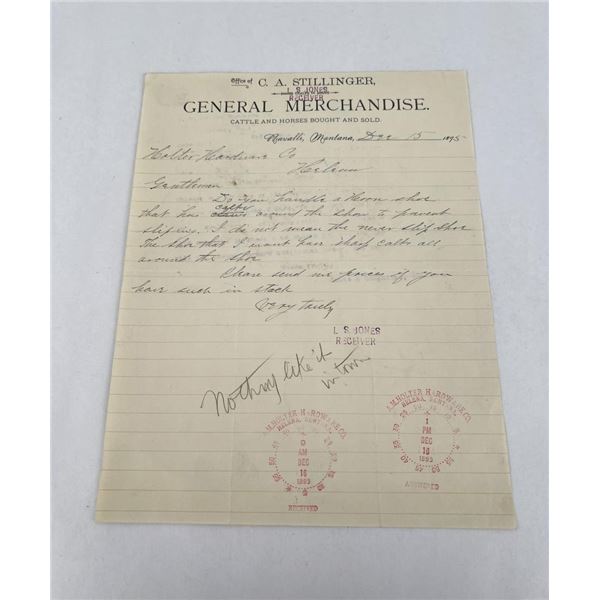 Office of C. A. STILLINGER,
I. S. JONES
RECEIVER
GENERAL MERCHANDISE.
CATTLE AND HORSES BOUGHT AND SOLD.
Ravalli, Montana, Dec 15 1895
Holter Hardware Co
Helena
Gentlemen
Do you handle a Horse shoe
calks
that has around the shoe to prevent
sliping. I do not mean the never slip shoe
The shoe that I want has sharp calks all
around the shoe
Please send me prices if you
have such in stock
Very truly
I. S. JONES
RECEIVER
Nothing like it
in town
A.M. HOLTER HARDWARE CO.
HELENA, MONTANA
AM
DEC
16
1895
RECEIVED
A.M. HOLTER HARDWARE CO.
HELENA, MONTANA
1
PM
DEC
16
1895
ANSWERED